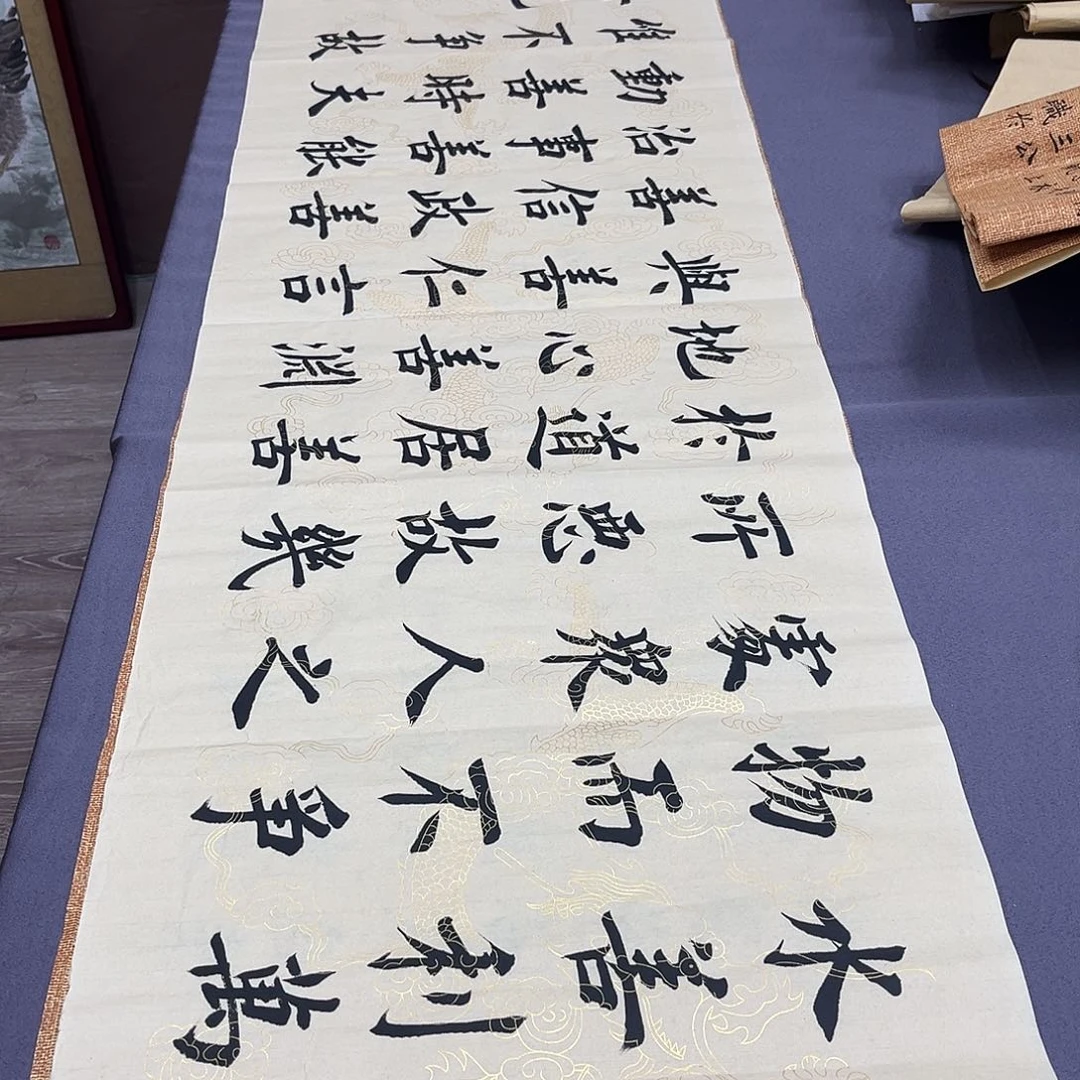 水善利萬
物而不爭
處衆人之
所惡故幾
於道居善
地心善淵
與善仁言
善信政善
治事善能
動善時夫
唯不爭故